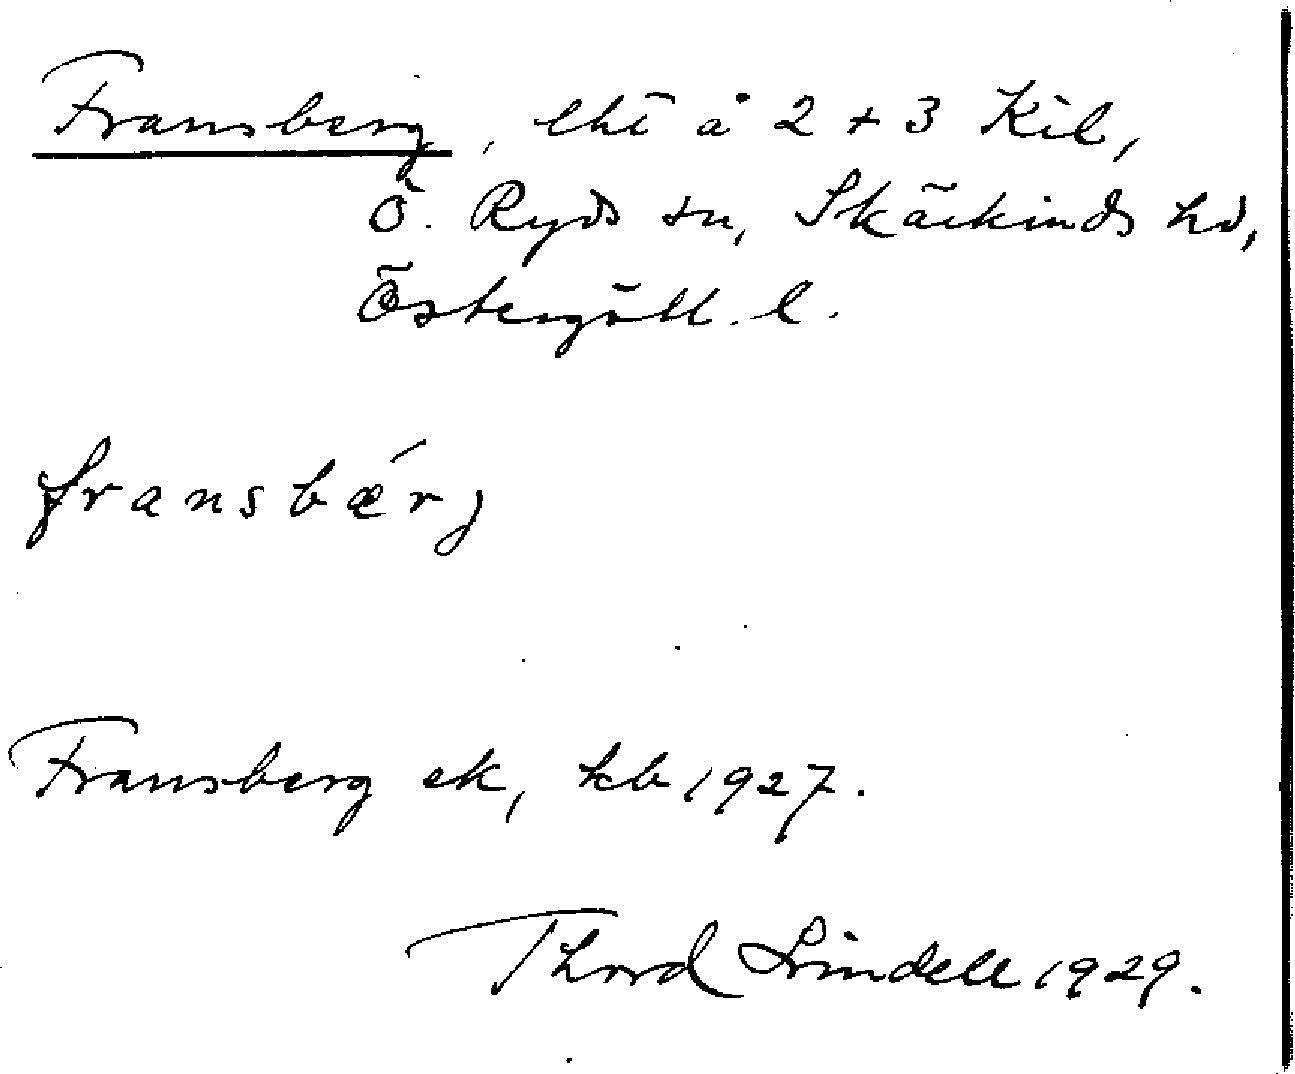 Fransberg, lht å 2 + 3 Kil,
Ö. Ryds sn, Skärkinds hd,
Östergötl. l.
fransbǽrj
Fransberg ek, kb 1927.
Thord Lindell 1929.